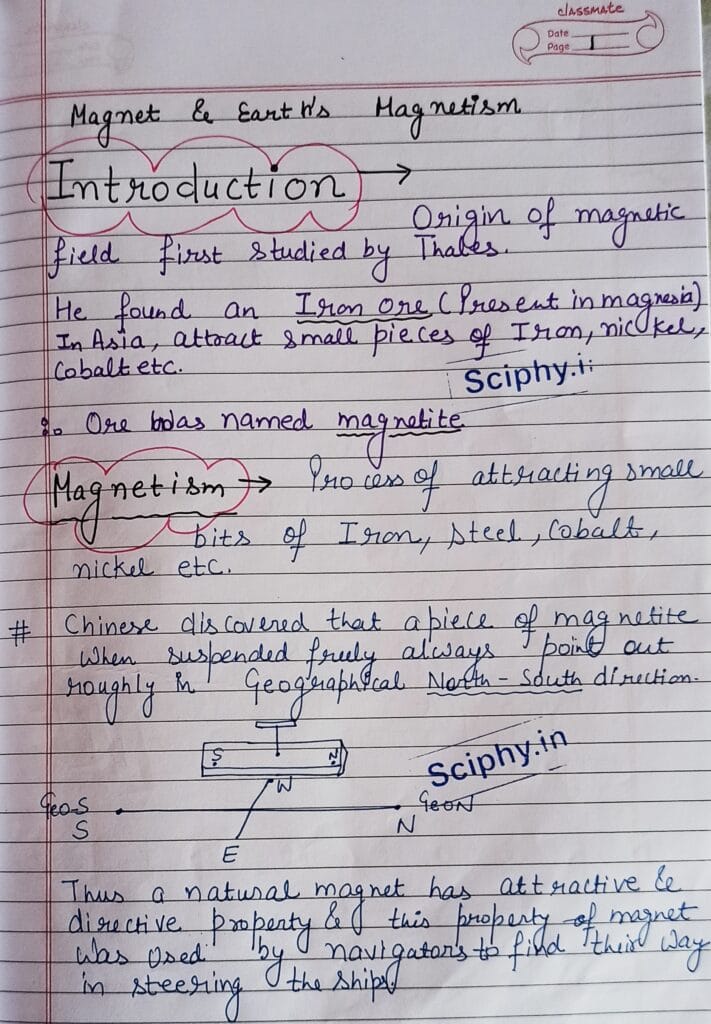 classmate
Date
Page 1
Magnet & Earth's Magnetism
Introduction →
Origin of magnetic
field first studied by Thales.
He found an Iron ore (Present in magnesia)
In Asia, attract small pieces of Iron, nickel,
Cobalt etc.
Sciphy.in
Ore was named magnetite
Magnetism → Process of attracting small
bits of Iron, steel, Cobalt,
nickel etc.
# Chinese discovered that a piece of magnetite
When suspended freely always point out
roughly in Geographical North-South direction.
S N
Sciphy.in
W
Geo S Geo N
S N
E
Thus a natural magnet has attractive &
directive property & this property of magnet
was used by navigators to find their way
in steering the ships